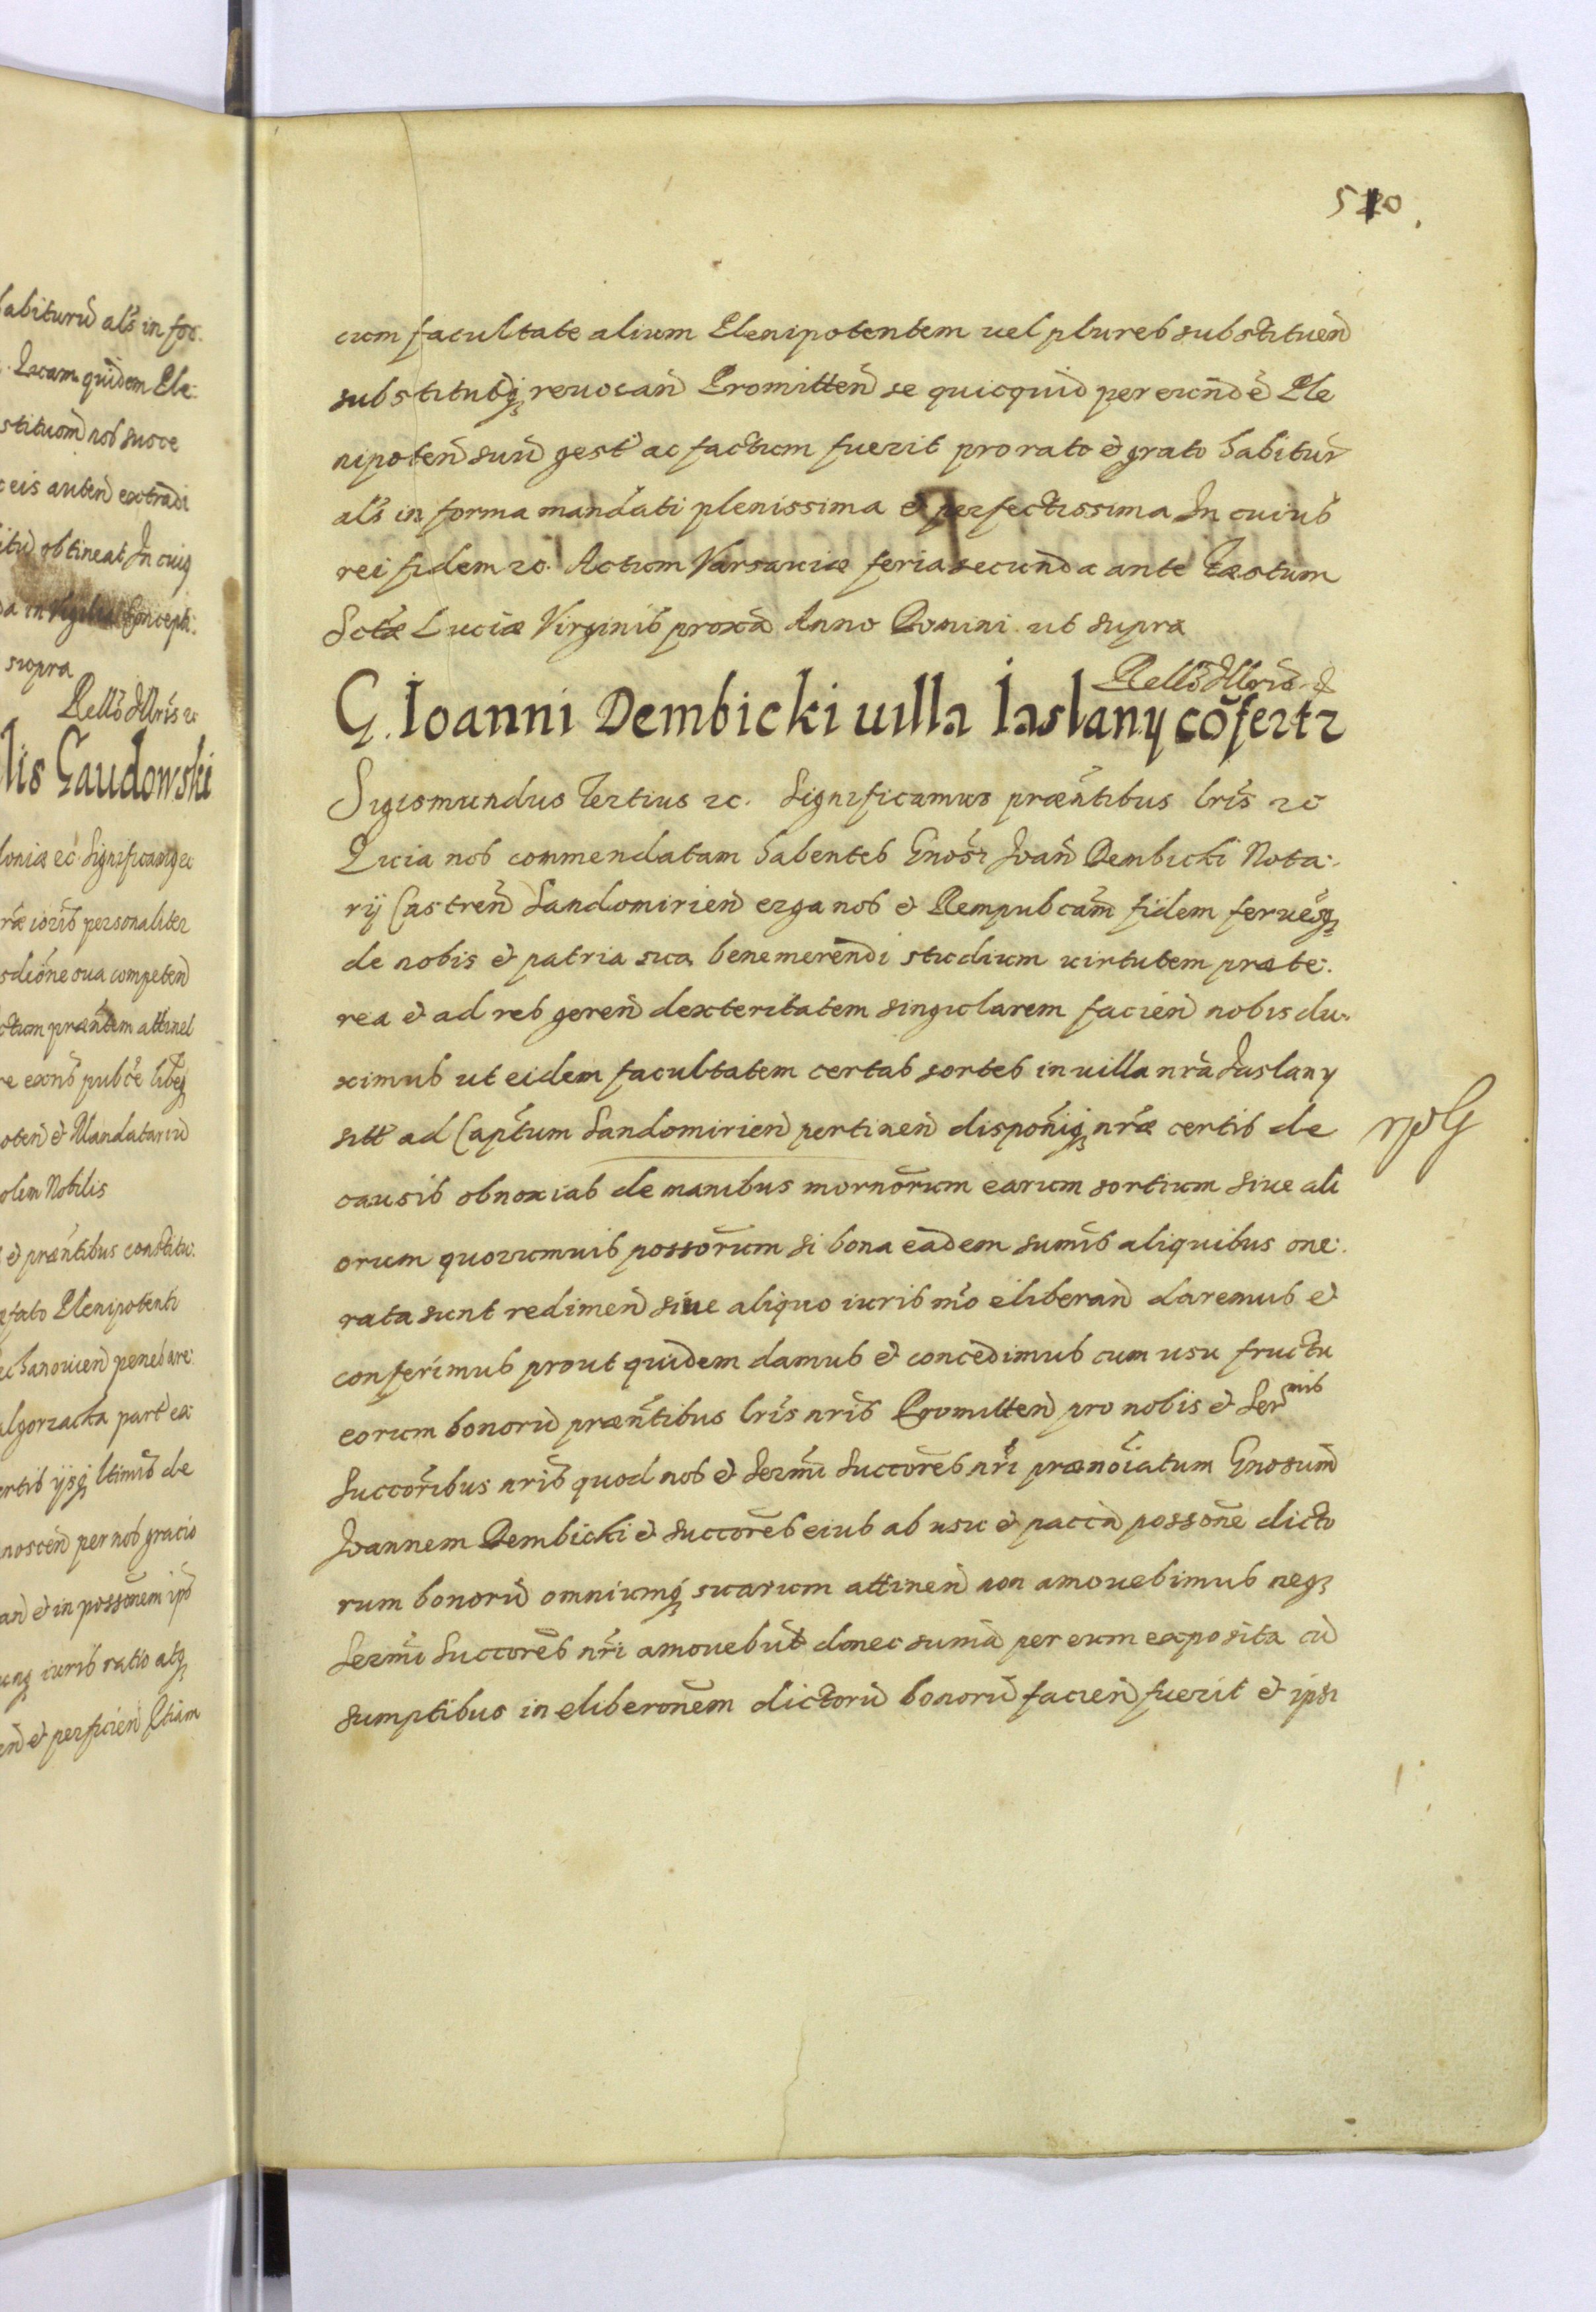 habiturũ als in for:
Quam quidem Ple:
nos suos
eis autem extradi
obtineat In cuiq
da in Vigilia Concept:
supra
Rellõ Illris &c
lis Gaudowski
loniæ ec Significamq &c
ræ ioris personaliter
sdione sua competeñ
ctum præntem attinet
re exns pubce libeq
oteñ et Mandatariũ
olem Nobilis
et præntibus constitu:
efato Plenipotenti
part ex
ertis ijsq ltimis de
noscen per nos gracio
añ et in possonem ips
iuris ratio atq
eñ et perficieñ Etiam
510.
cum facultate alium Plenipotentem uel plures substitueñ
substitutosq reuocañ Promitteñ se quicquid per eundē Ple
nipoteñ suũ gest ac factum fuerit pro rato et grato habitur̃
als in forma mandati plenissima et perfectissima In cuius
rei fidem &c. Actum Varsauiæ feria secunda ante Fæstum
Sctæ Luciæ Virginis proxa Anno Domini ut supra
Rellõ Illris &
G. Ioanni Dembicki uilla Iaslany cõfertr
Sigismundus Tertius &c. Significamus præntibus lris &c
Quia nos commendatam habentes Gnosi Ioañ Dembicki Nota:
rij Castreñ Sandomirieñ erga nos et Rempubcam fidem feruesq
de nobis et patria sua benemerendi studium uirtutem præte:
rea et ad res gereñ dexteritatem singularem facieñ nobis du:
ximus ut eidem facultatem certas sortes in uilla nra Iaslany
sitt ad Captum Sandomirieñ pertineñ disponiq nræ certis de
causis obnoxias de manibus mornorum earum sortium siue ali
orum quorumuis possorum si bona eadem sumis aliquibus one:
rata sunt redimeñ siue aliquo iuris mo eliberañ daremus et
conferimus prout quidem damus et concedimus cum usu fructu
eorum bonorũ præntibus lris nris Promitteñ pro nobis et Sermis
Succoribus nris quod nos et Sermi Succores nri prænoiatum Gnosum
Ioannem Dembicki et Succores eius ab usu et pacca possone dicto
rum bonorũ omniumq suarum attineñ non amouebimus neq
Sermi Succores nri amouebũt donec suma per eum exposita cũ
sumptibus in eliberonem dictorũ bonorũ facieñ fuerit et ipsi